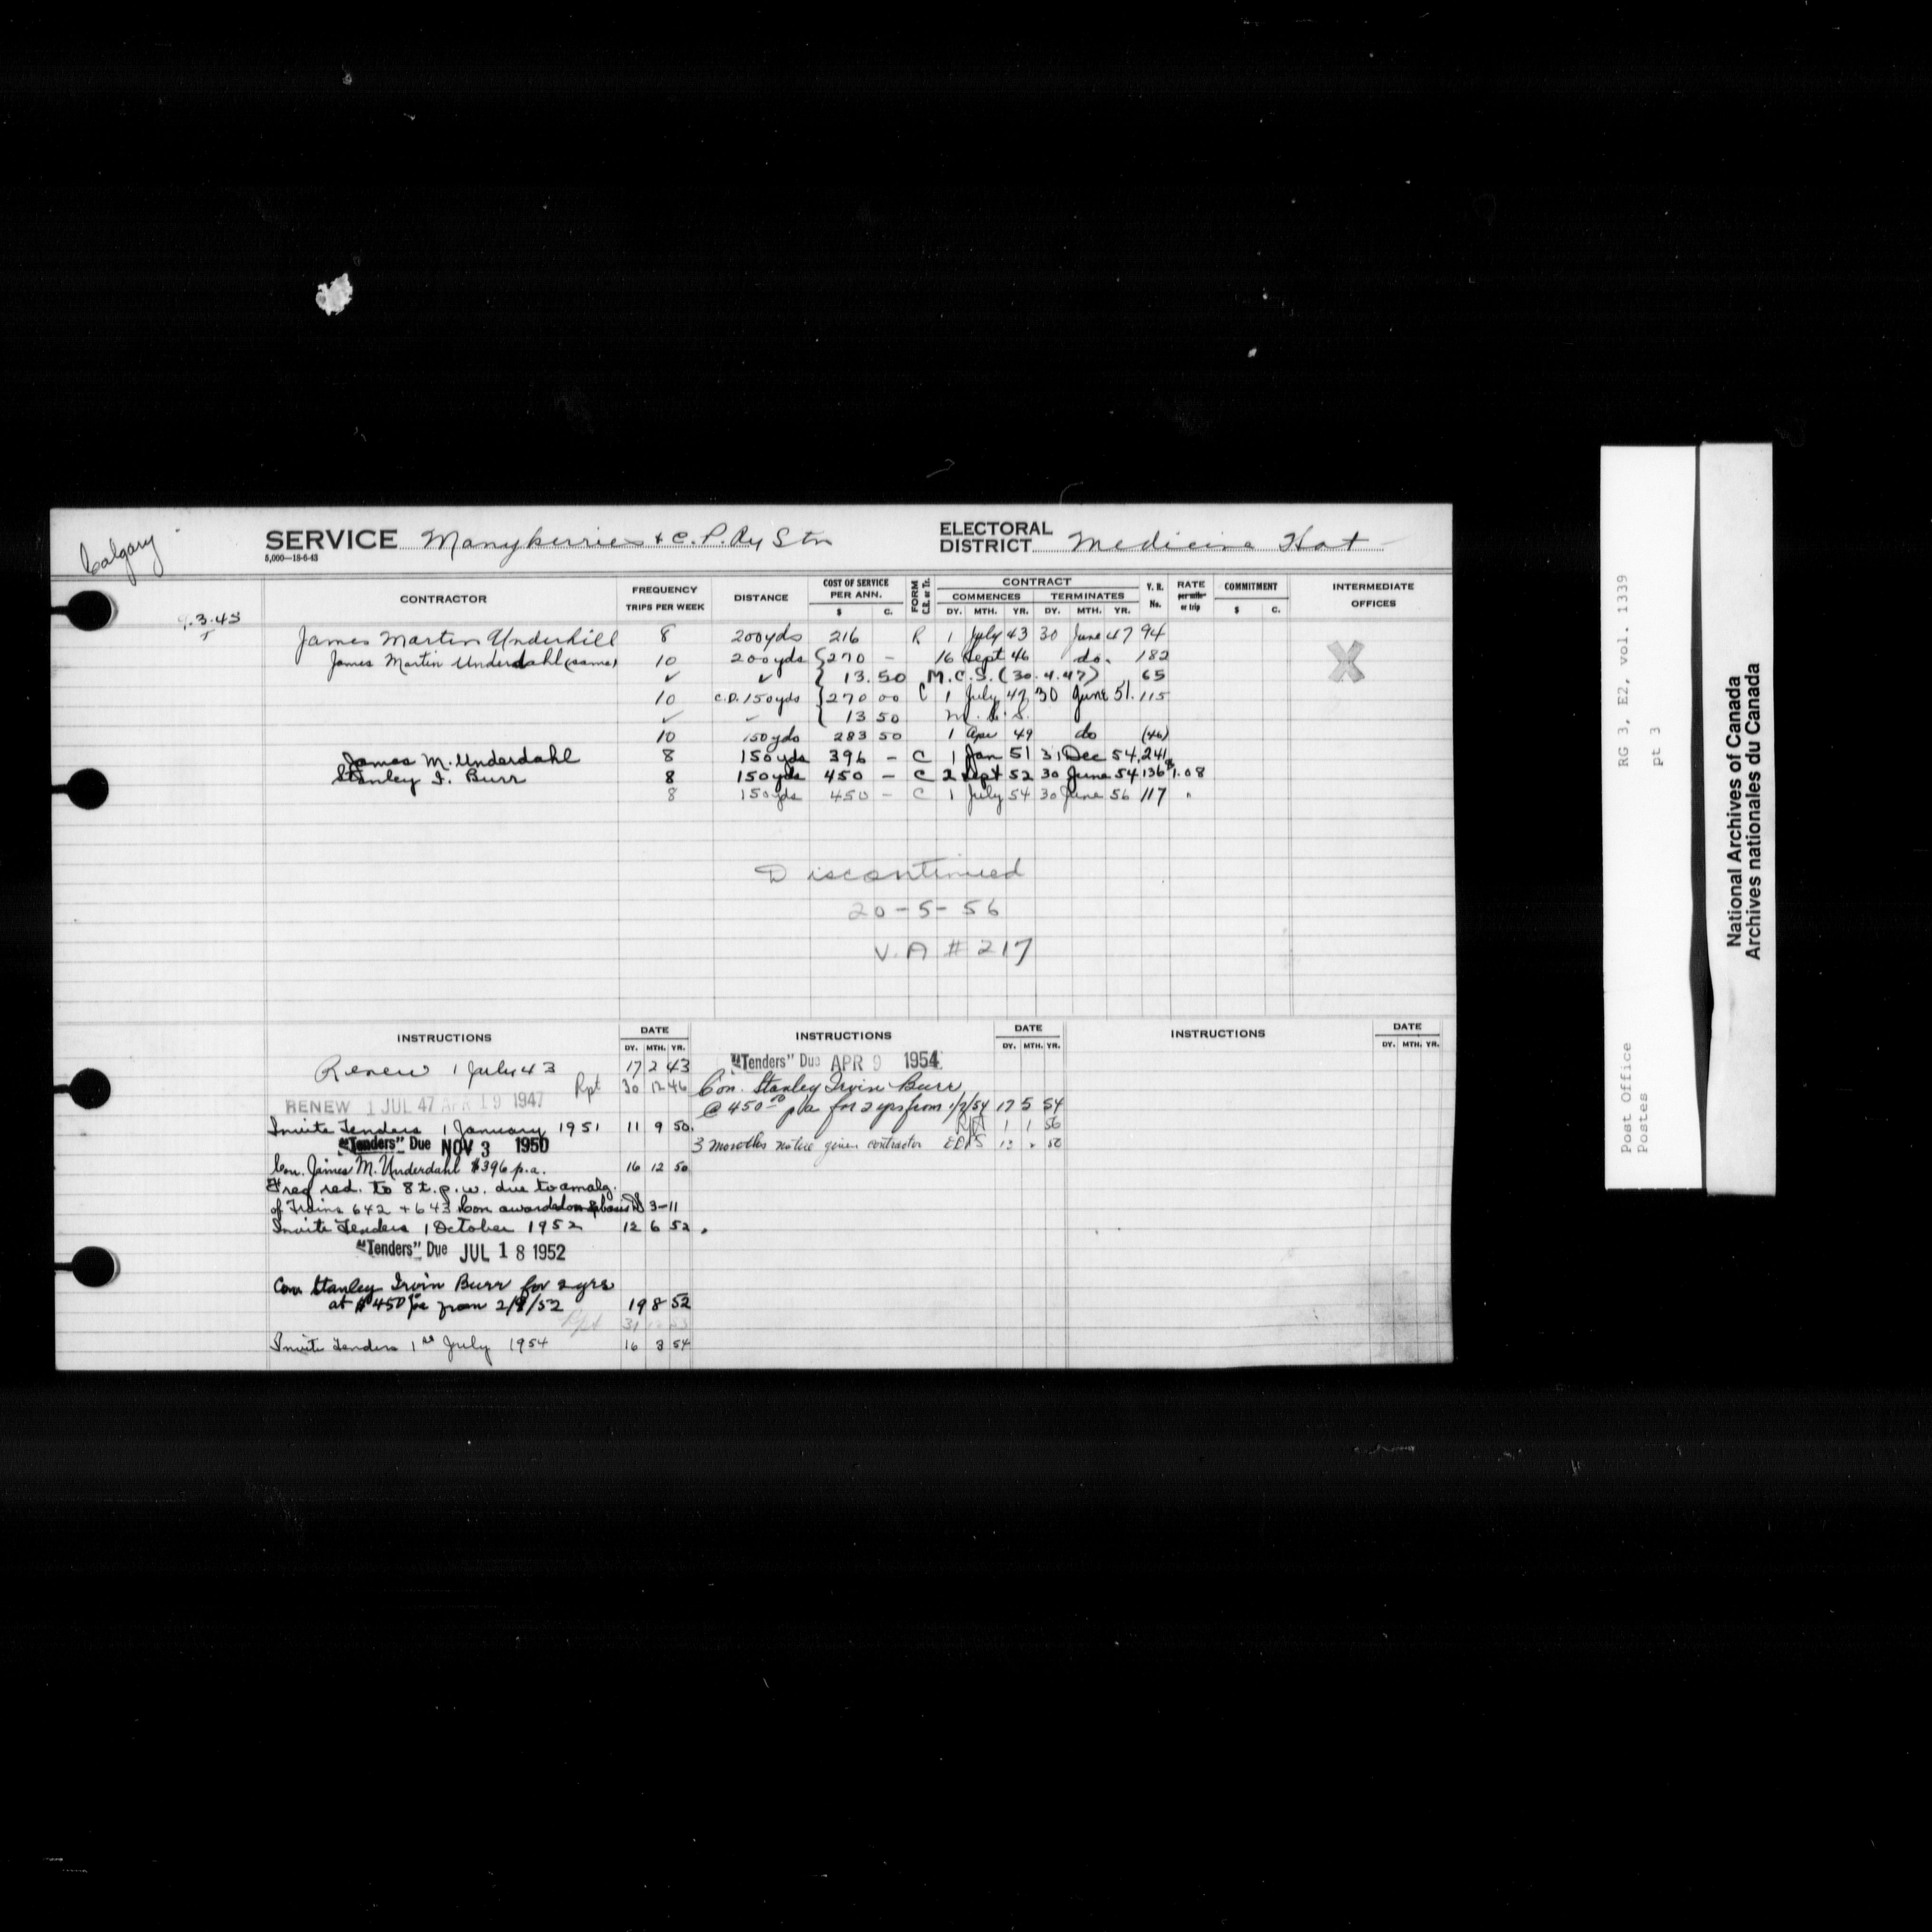 Calgary
SERVICE Manyberries & C.P.Ry Stn
5,000—18-6-43
ELECTORAL DISTRICT Medicine Hat
CONTRACTOR FREQUENCY TRIPS PER WEEK DISTANCE COST OF SERVICE PER ANN. $ C. FORM C.R. or Tr. CONTRACT COMMENCES DY. MTH. YR. TERMINATES DY. MTH. YR. V. R. No. RATE per mile or trip COMMITMENT $ C. INTERMEDIATE OFFICES
.3.45
James Martin Underhill 8 200yds 216 R 1 July 43 30 June 47 94
James Martin Underdahl (same) 10 200yds 270 – 16 Sept 46 do. 182
✓ ✓ 13.50 M.C.S. (30.4.47) 65
10 C.D. 150yds 270 00 C 1 July 47 30 June 51. 115
✓ ✓ 13 50 M.C.S.
10 150yds 283 50 1 Apr 49 do (46)
James M. Underdahl 8 150yds 396 – C 1 Jan 51 31 Dec 54 241
Stanley I. Burr 8 150yds 450 – C 2 Sept 52 30 June 54 136 $1.08
8 150yds 450 – C 1 July 54 30 June 56 117 "
X
Discontinued
20-5-56
V.A #217
INSTRUCTIONS DATE DY. MTH. YR.
Renew 1 July 43 17 2 43
Rpt 30 12 46
RENEW 1 JUL 47 APR 19 1947
Invite Tenders 1 January 1951 11 9 50.
"Tenders" Due NOV 3 1950
Con. James M. Underdahl $396 p.a. 16 12 50
Freq red. to 8 t.p.w. due to amalg.
of Trains 642 + 643 Con awarded on basis 3-11
Invite Tenders 1 October 1952 12 6 52.
"Tenders" Due JUL 18 1952
Con Stanley Irvin Burr for 2 yrs
at $450 from 2/9/52 19 8 52
Rpt 31
Invite Tenders 1st July 1954 16 3 54
INSTRUCTIONS DATE DY. MTH. YR.
"Tenders" Due APR 9 1954
Con. Stanley Irvin Burr
@ 450.00 p/a for 2 yrs from 1/7/54 17 5 54
1 1 56
3 months notice given contractor
INSTRUCTIONS DATE DY. MTH. YR.
RG 3, E2, vol. 1339
pt 3
Post Office
Postes
National Archives of Canada
Archives nationales du Canada